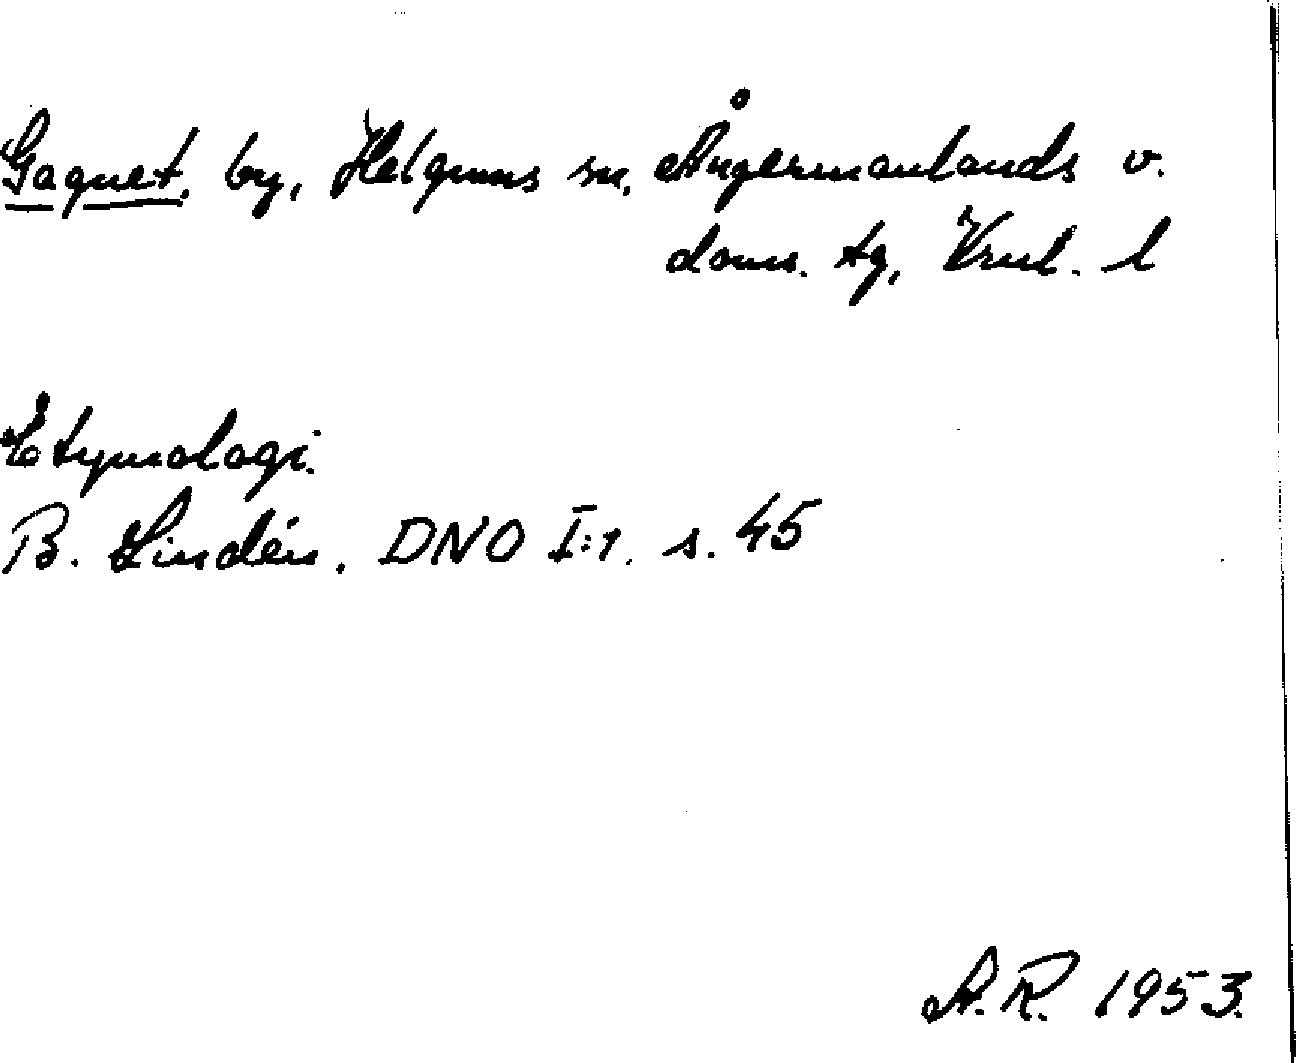 Gagnet, by, Helgums sn, Ångermanlands v.
doms. tg, Vrnl. l
Etymologi.
B. Lindén, DNO I:1. s. 45
A.R. 1953.